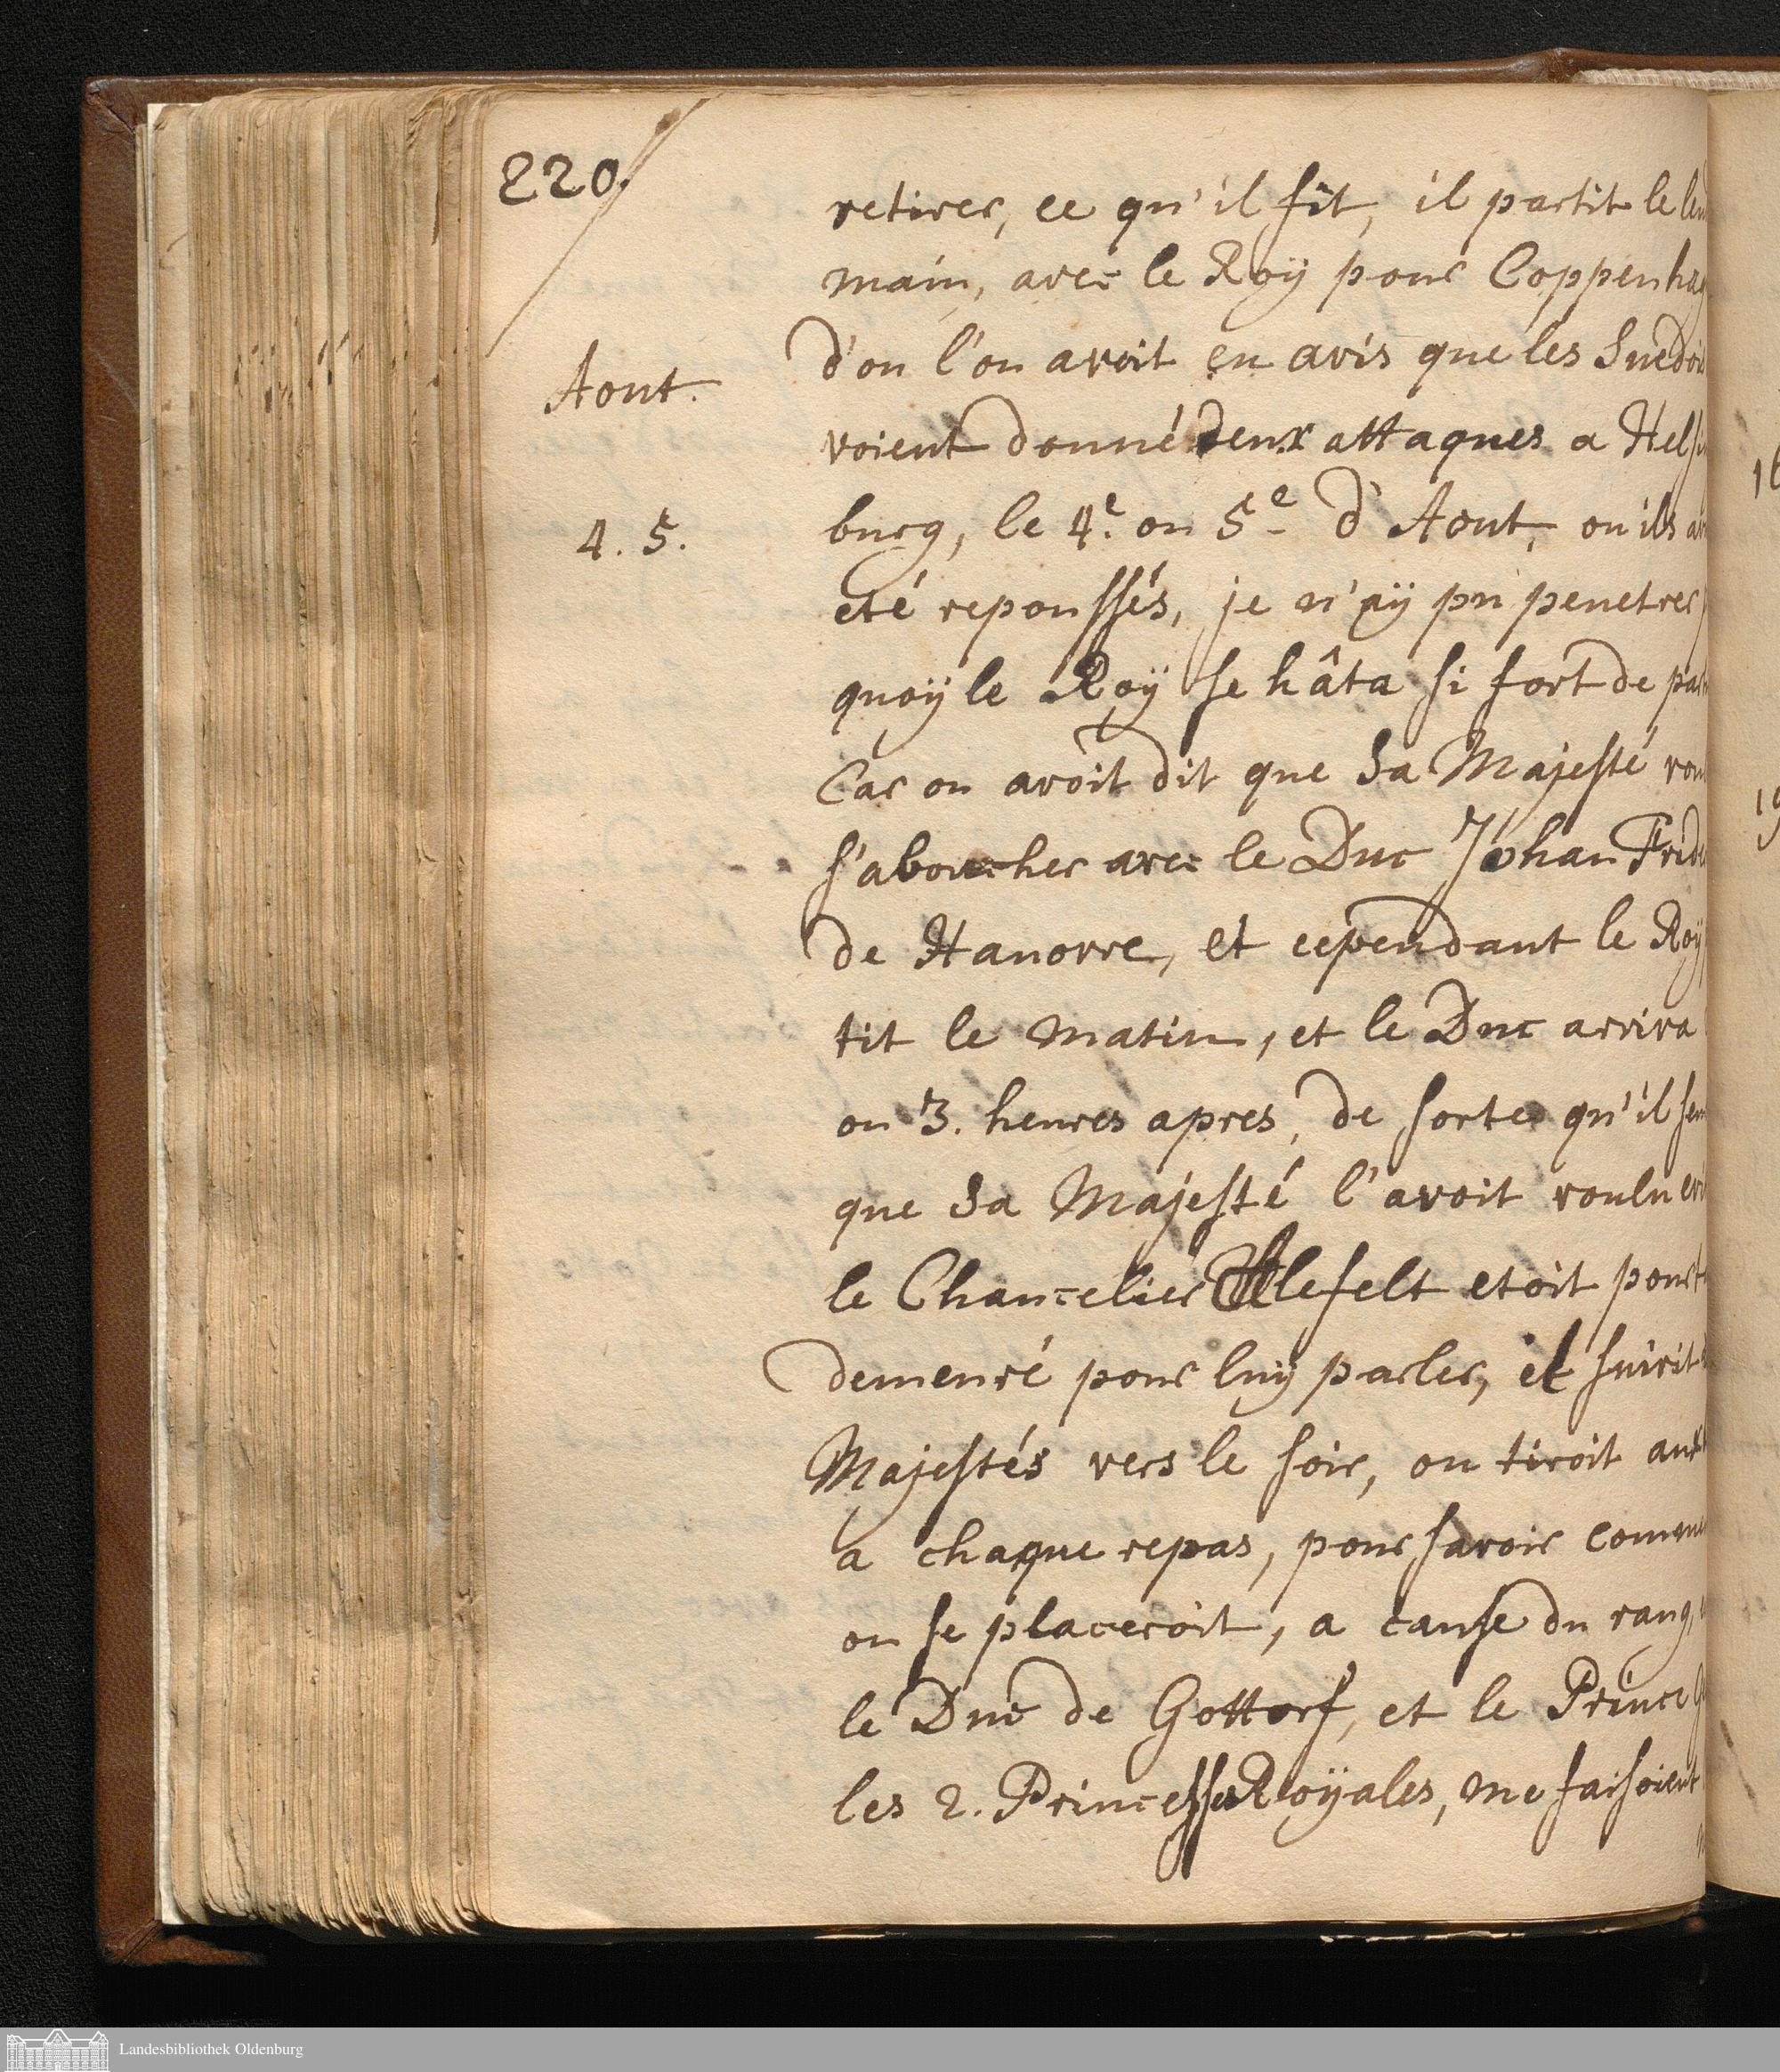 220.
retirer, ce qu'il fit, il partit le len
main, avec le Roÿ pour Coppenhag
Aout.
d'ou l'on avoit eu avis que les Suedois
voient donné deux attaques a Helsin
4. 5.
burg, le 4.e ou 5e d'Aout, ou ils av
eté repoussés, je n'aÿ pu penetrer p
quoÿ le Roÿ se hâta si fort de part
Car on avoit dit que Sa Majesté vou
s'aboucher avec le Duc Johan Fride
de Hanovre, et cependant le Roÿ
tit le matin, et le Duc arriva
ou 3. heures apres, de sorte qu'il sem
que Sa Majesté l'avoit voulu evi
le Chancelier Alefelt etoit pourt
demeuré pour luÿ parler, et suivit
Majestés vers le soir, on tiroit aux
a chaque repas, pour savoir comme
on se placeroit, a cause du rang,
le Duc de Gottorf, et le Prince G
les 2. Princesses Roÿales, me faisoient
Landesbibliothek Oldenburg